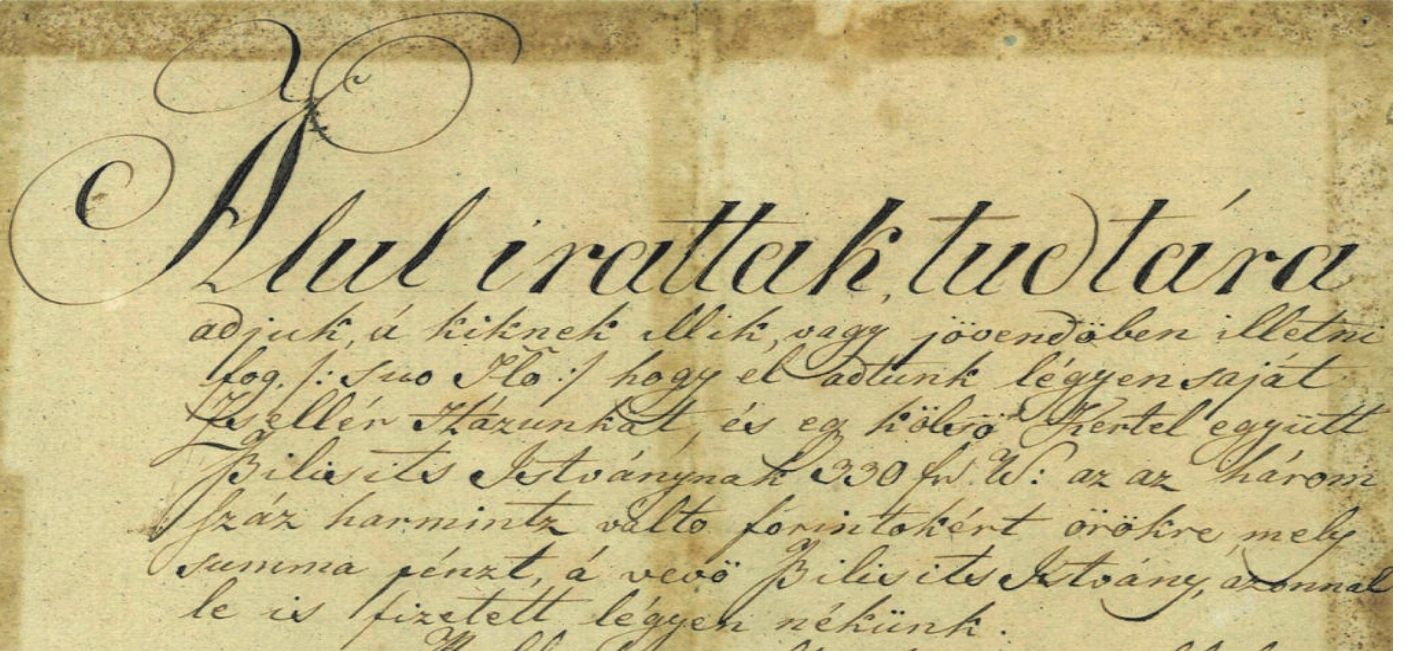 Alul irattak, tudtára
adjuk, á kiknek illik, vagy jövendöben illetni
fog. /: suo Tło :/ hogy el adtunk légyen saját
Zsellér Házunkat, és eg kölsö Kertel együtt
Bilisits Istványnak 330 fr. W: az az három
száz harmintz válto forintokért örökre, mely
summa pénzt, á vevö Bilisits Istvány, azonnal
le is fizetett légyen nékünk.